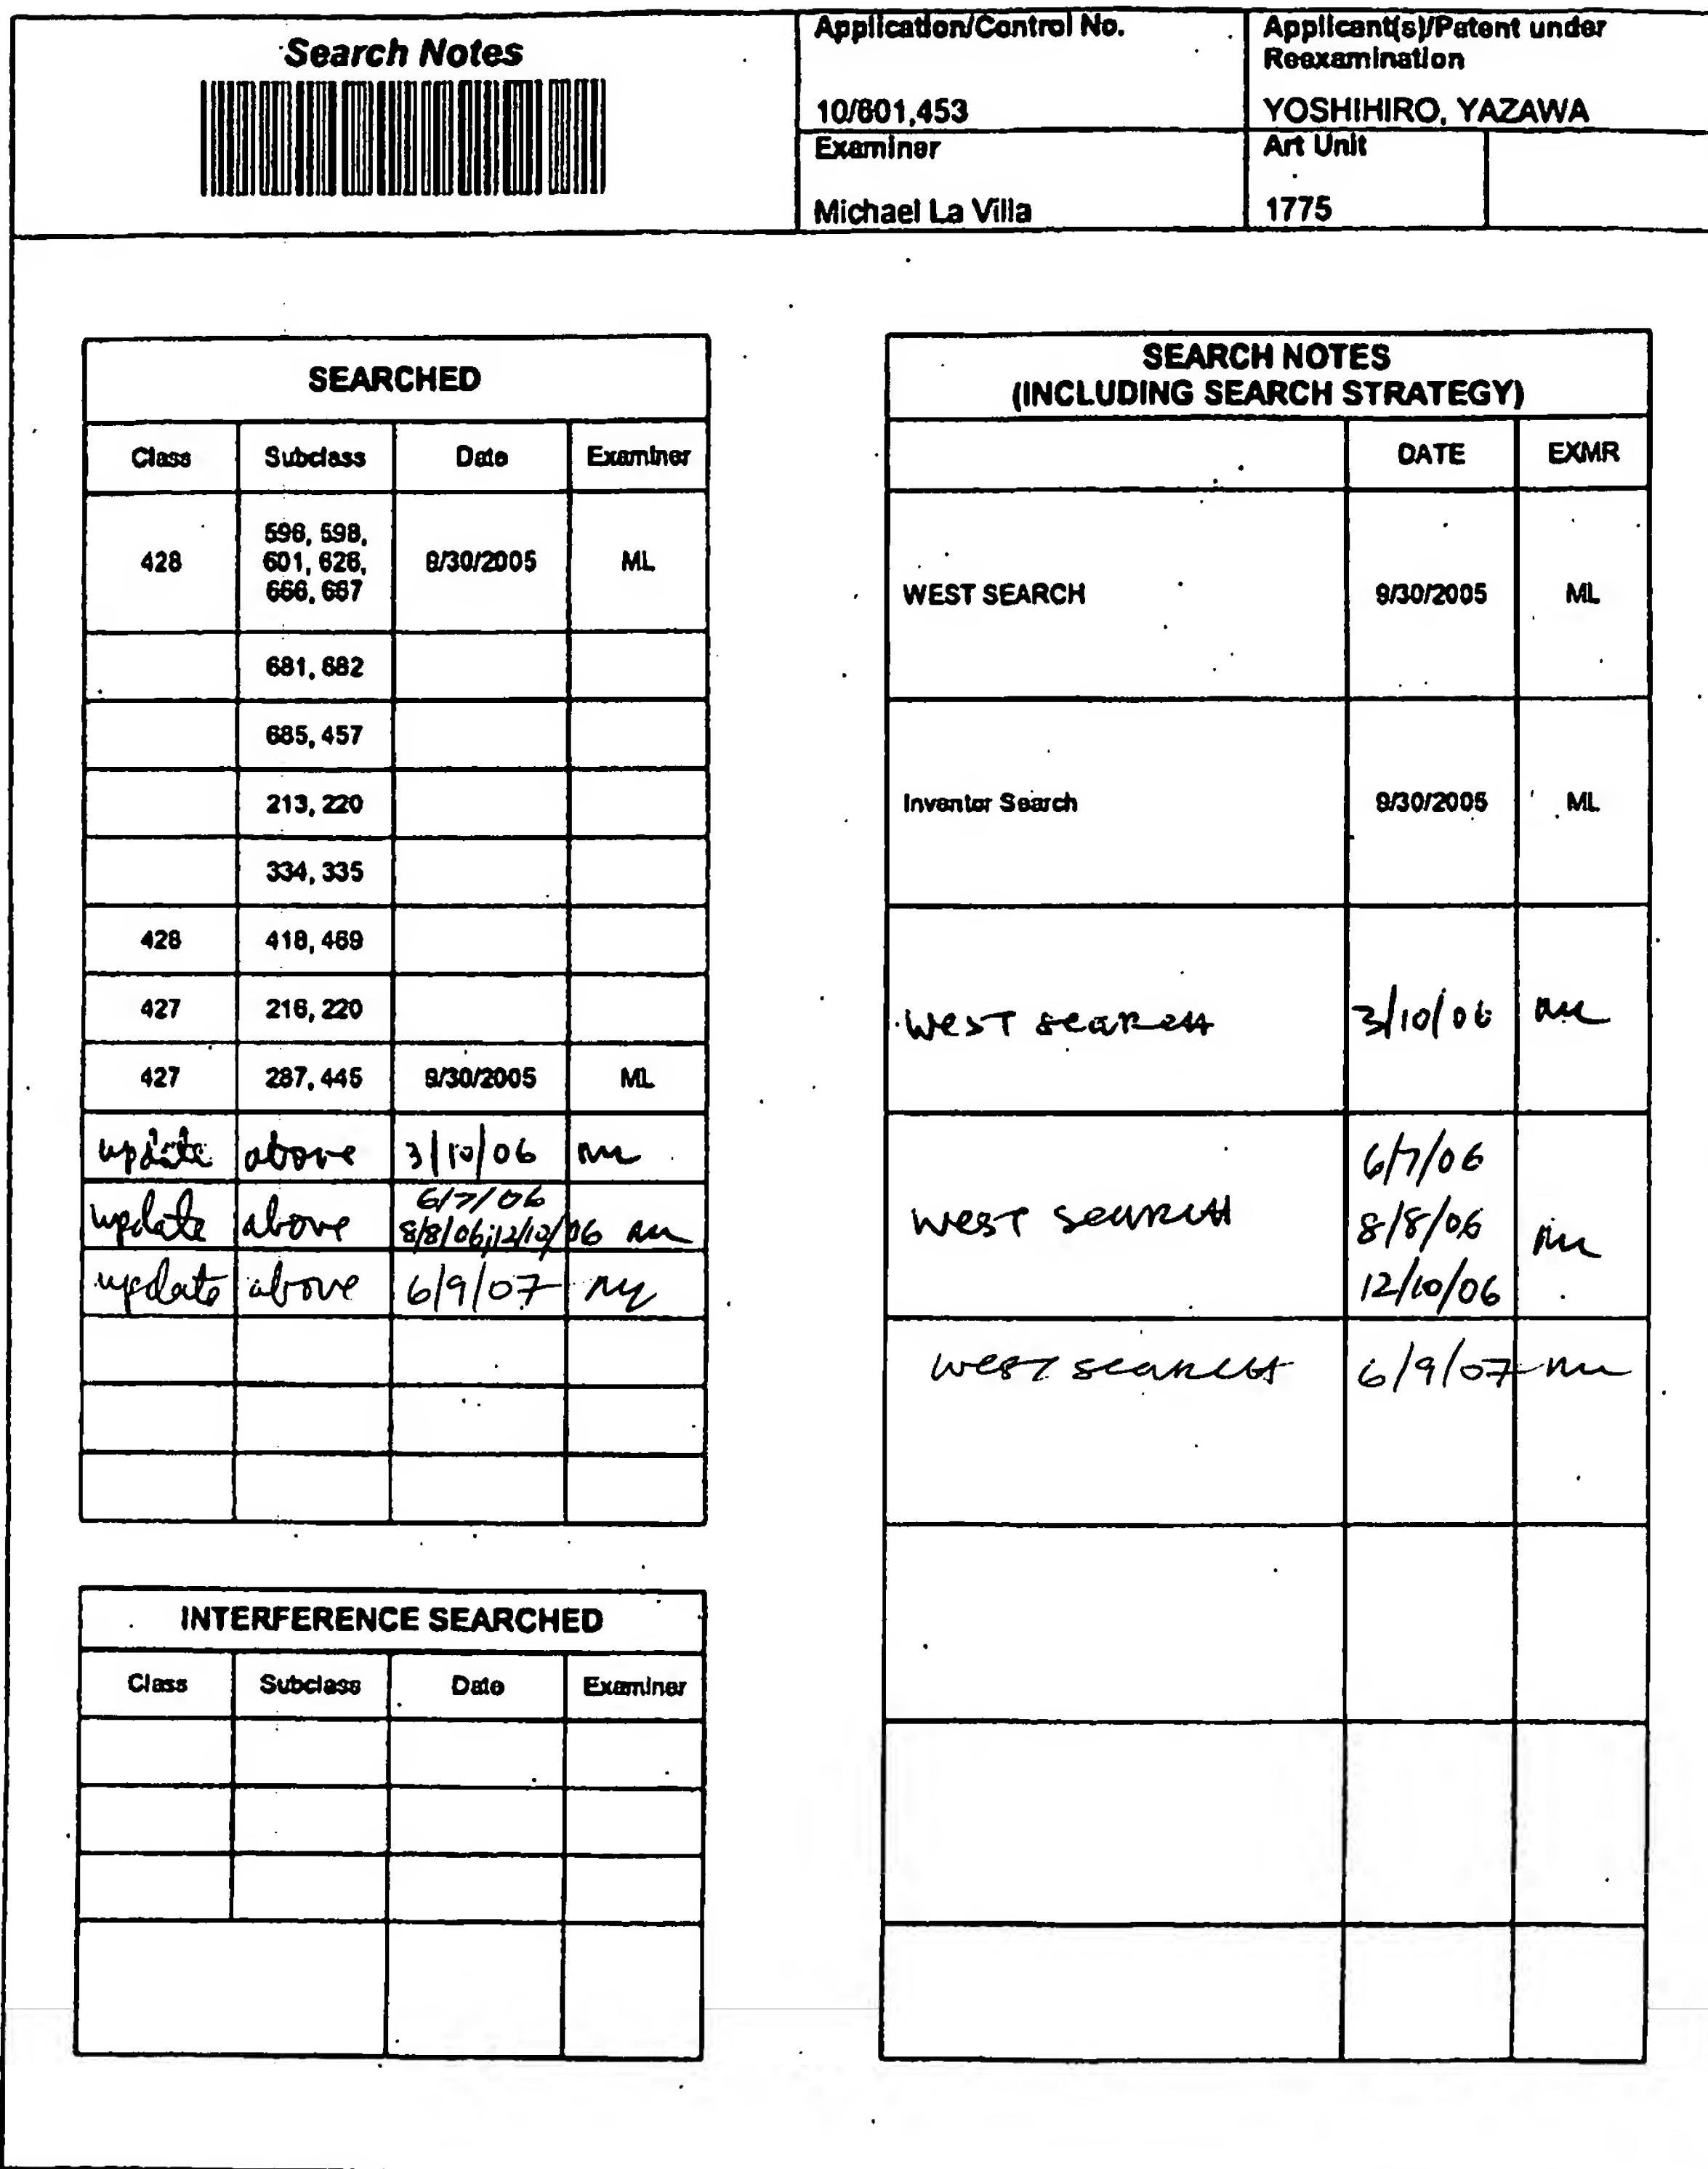 Search Notes
Application/Control No.
10/601,453
Applicant(s)/Patent under
Reexamination
YOSHIHIRO, YAZAWA
Examiner
Michael La Villa
Art Unit
1775
SEARCHED
Class Subclass Date Examiner
428 596, 598,
601, 626,
666, 667 9/30/2005 ML
681, 682
685, 457
213, 220
334, 335
428 418, 469
427 216, 220
427 287, 445 9/30/2005 ML
update above 3/10/06 ML
update above 6/7/06
8/8/06; 12/10/06 ML
update above 6/9/07 ML
INTERFERENCE SEARCHED
Class Subclass Date Examiner
SEARCH NOTES
(INCLUDING SEARCH STRATEGY)
DATE EXMR
WEST SEARCH 9/30/2005 ML
Inventor Search 9/30/2005 ML
WEST SEARCH 3/10/06 ML
WEST SEARCH 6/7/06
8/8/06 ML
12/10/06
WEST SEARCH 6/9/07 ML